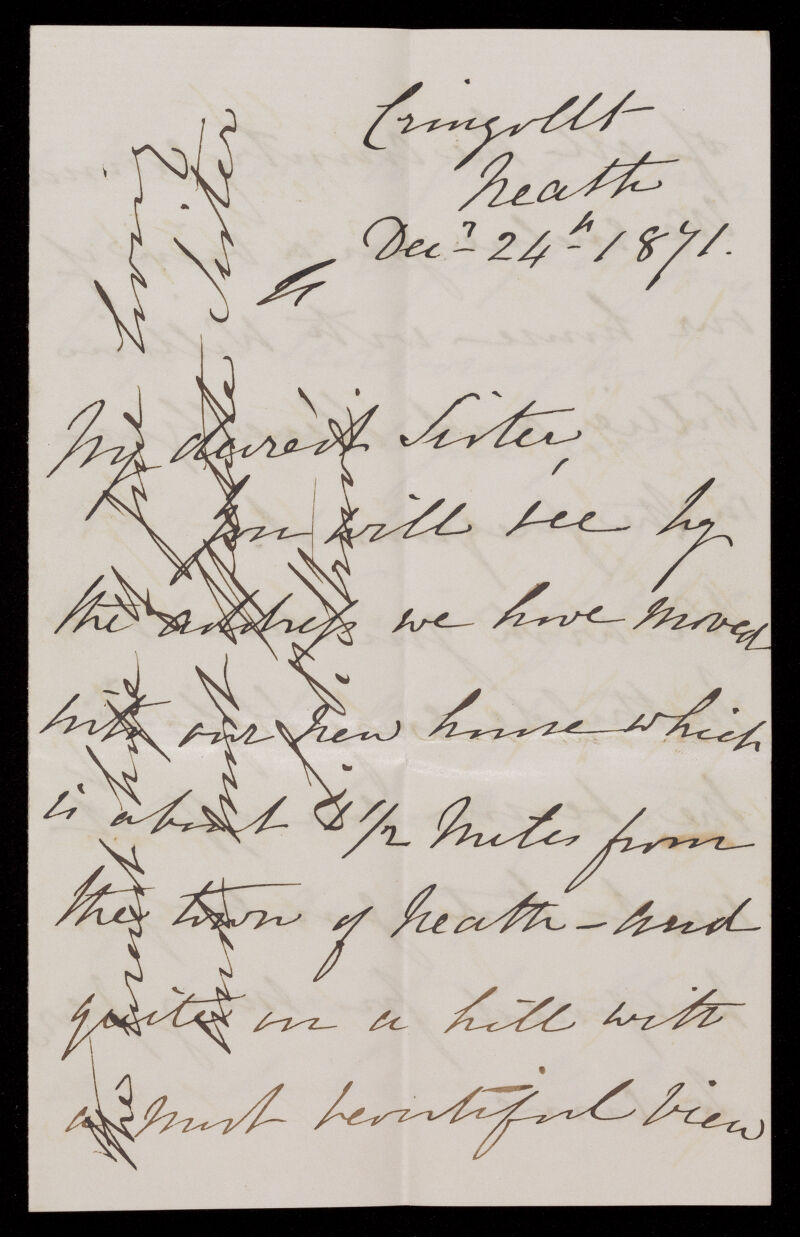 Cringollt
Neath
Decr 24th 1871.
My dearest Sister,
You will see by
the address we have moved
into our new house which
is about 1 1/2 Miles from
the town of Neath – and
quite on a hill with
a most beautiful view
the nearest hope of your loving
and most Sister